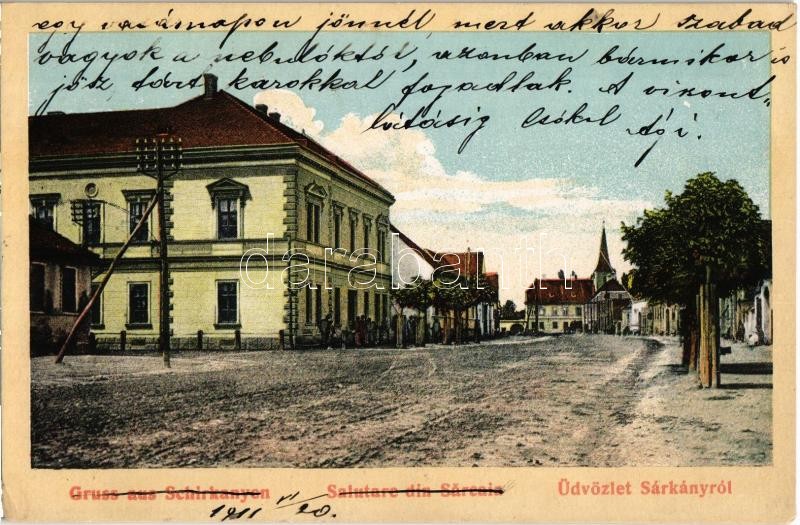 egy vasárnapon jönnél, mert akkor szabad
vagyok a nebulóktól, azonban bármikor is
jösz, tárt karokkal fogadlak. A viszont-
látásig Csókol Azi.
darabanth
Gruss aus Schirkanyen Salutare din Sărcaia Üdvözlet Sárkányról
1911 20.